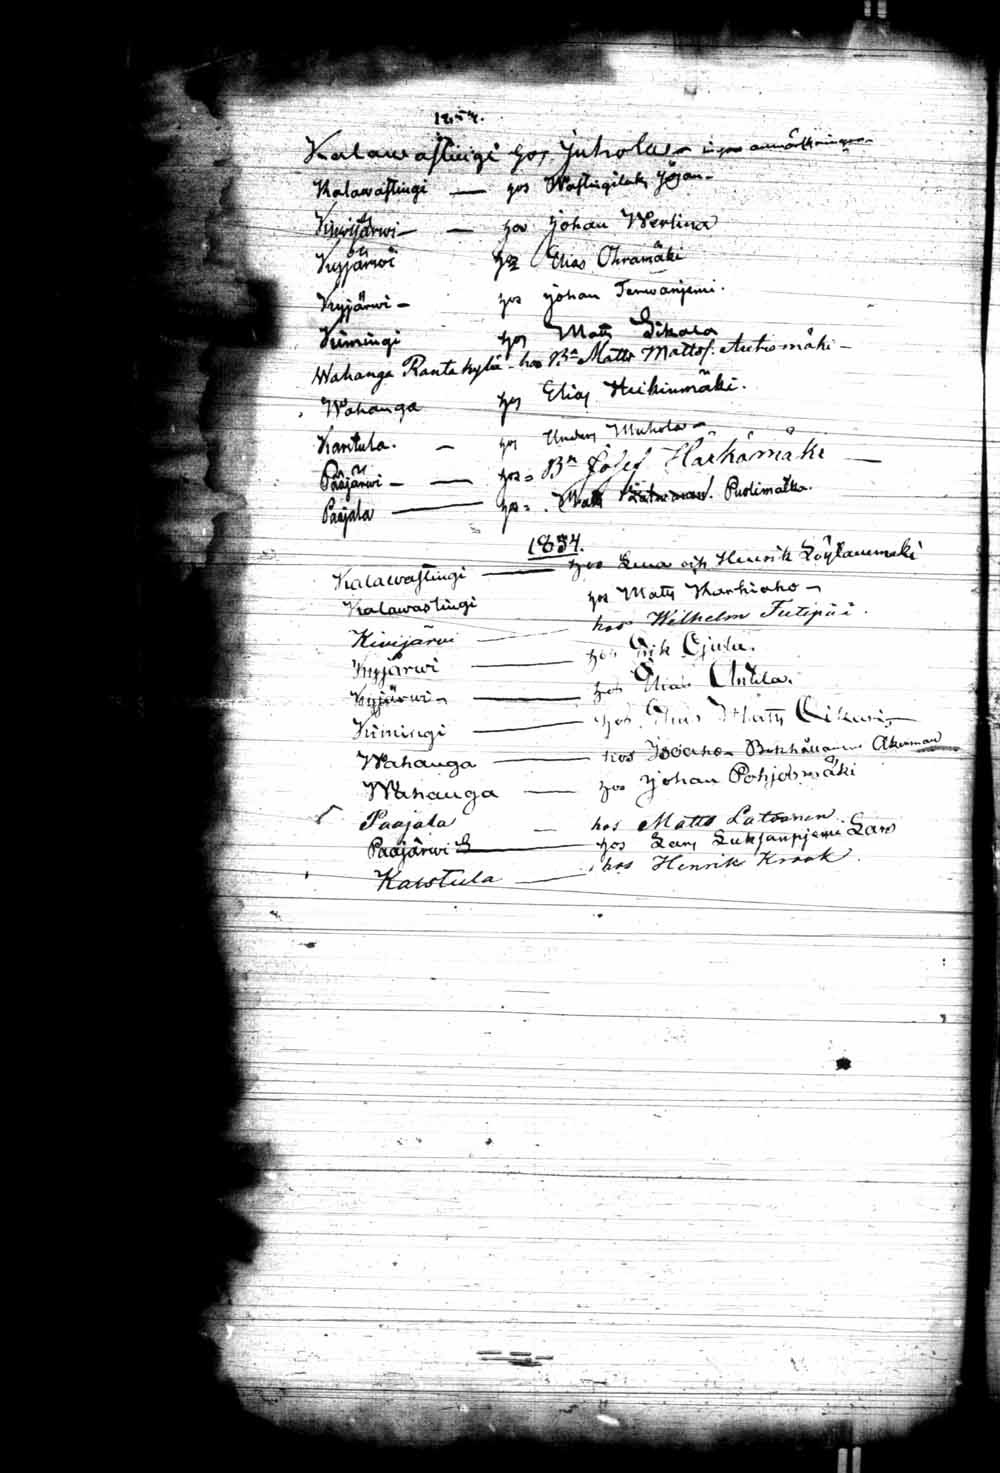 185
Kalawastingi hos Juhola inga anmärkningar
Kalawastingi — hos Wastingilax Johan
Kiwijärwi — hos Johan Werlina
Kyyjärwi hos Elias Ohramäki
Kyyjärwi — hos Johan Terwaniemi.
Kimingi hos Matts Sikala
Wahanga Rantakylä - hos Bn Matts Mattss. Autiomäki —
Wahanga hos Elias Heikinmäki.
Karstula. — hos Anders Muhola —
Pääjärwi — — hos Bn Josef Härkämäki —
Paajala — hos Matts Puolimatka.
1854.
Kalawastingi — hos Lena och Henrik Löytänemäki
Kalawastingi hos Matts Karhiaho —
Kivijärvi — hos Wilhelm Tutipää.
Kyyjärwi — hos Erik Ojala.
Kyyjärwi — — hos Elias Anttila.
Kimingi — hos Matts
Wahanga — hos Bokhållaren Åkerman
Wahanga — hos Johan Pohjosmäki
Paajala — hos Matts Latvanen
Pääjärwi — hos Lars Lars
Karstula — hos Henrik Krook.